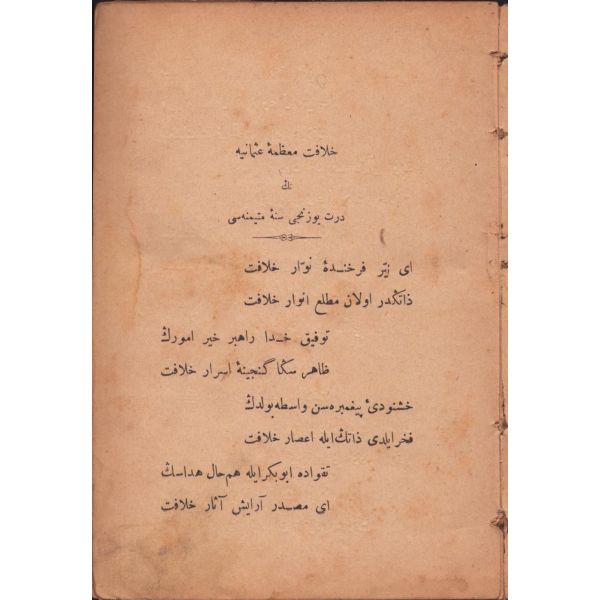 خلافت معظمهٔ عثمانیه
نڭ
درت یوزنجی سنهٔ متیمنه‌سی
ای نیّر فرخندهٔ نوّار خلافت
ذاتڭدر اولان مطلع انوار خلافت
توفیق خدا راهبر خیر امورڭ
ظاهر سڭا گنجینهٔ اسرار خلافت
خشنودیٔ پیغمبره‌سن واسطه بولدڭ
فخر ایلدی ذاتڭ ایله اعصار خلافت
تقواده ابوبکر ایله هم‌حال هداسڭ
ای مصدر آرایش آثار خلافت